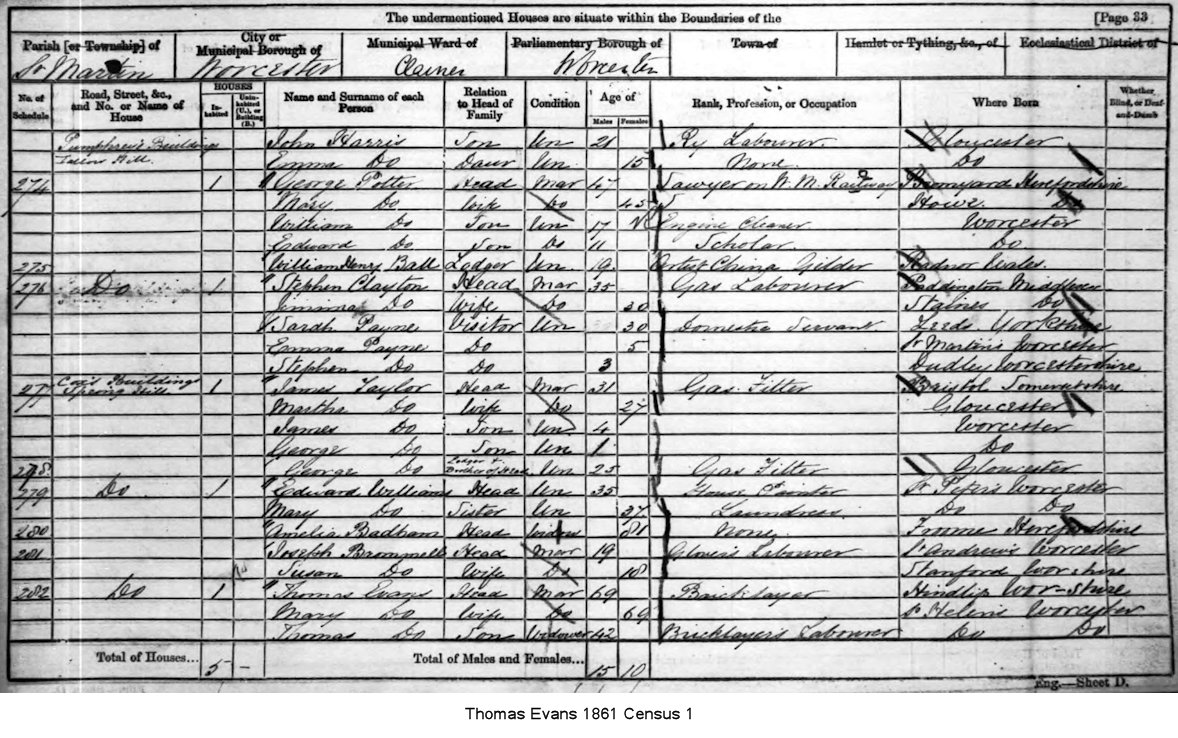 The undermentioned Houses are situate within the Boundaries of the [Page 33
Parish [or Township] of City or Municipal Borough of Municipal Ward of Parliamentary Borough of Town of Hamlet or Tything, &c., of Ecclesiastical District of
St. Martin Worcester Claines Worcester
No. of Schedule Road, Street, &c., and No. or Name of House HOUSES Inhabited Uninhabited (U.), or Building (B.) Name and Surname of each Person Relation to Head of Family Condition Age of Males Females Rank, Profession, or Occupation Where Born Whether Blind, or Deaf-and-Dumb
Buildings John Harris Son Un 21 Ry Labourer Gloucester
Hill Emma Do Daur Un 15 None Do
274 1 George Potter Head Mar 47 Sawyer on W. M. Railway Bromyard Herefordshire
Mary Do Wife Do 45 Do
William Do Son Un 17 Engine Cleaner Worcester
Edward Do Son Do 11 Scholar Do
275 William Henry Ball Lodger Un 19 Artist China Gilder Radnor Wales
276 Do 1 Stephen Clayton Head Mar 35 Gas Labourer Paddington Middlesex
Jemima Do Wife Do 30 Staines Do
Sarah Payne Visitor Un 30 Domestic Servant Leeds Yorkshire
Emma Payne Do 5 St Martins Worcester
Stephen Do Do 3 Dudley Worcestershire
277 Buildings Spring Hill 1 James Taylor Head Mar 31 Gas Fitter Bristol Somersetshire
Martha Do Wife Do 27 Gloucester
James Do Son Un 4 Worcester
George Do Son Un 1 Do
278 George Do Lodger & Brother of Head Un 25 Gas Fitter Gloucester
279 Do 1 Edward Williams Head Un 35 House Painter St Peters Worcester
Mary Do Sister Un 37 Laundress Do Do
280 Amelia Badham Head Widow 81 None Herefordshire
281 Joseph Brommell Head Mar 19 Glover's Labourer St Andrew's Worcester
Susan Do Wife Do 18 Stanford Wor-shire
282 Do 1 Thomas Evans Head Mar 69 Bricklayer Hindlip Wor-shire
Mary Do Wife Do 69 St Helen's Worcester
Thomas Do Son Widower 42 Bricklayer's Labourer Do Do
Total of Houses... 5 - Total of Males and Females... 15 10
Eng.—Sheet D.
Thomas Evans 1861 Census 1